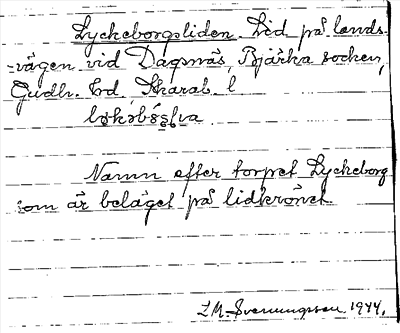 Lyckeborgsliden. Lid på lands-
vägen vid Dagsnäs, Bjärka socken,
Gudh. hd, Skarab. l
Namn efter torpet Lyckeborg
som är beläget på lidkrönet.
L M. Svenungsson 1944.